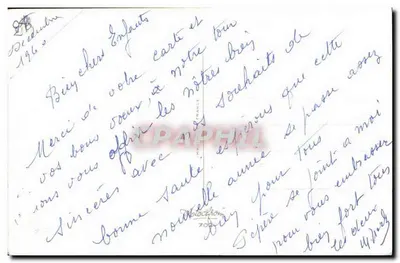 28
Décembre
1960
Bien chers Enfants
Merci de votre carte et
vos bons voeux, à notre tour
nous vous offrir les nôtres bien
sincères avec nos souhaits de
bonne santé espérons que cette
nouvelle année se passe assez
bien pour tous
Pépère se joint à moi
pour vous embrasser
bien fort tous
les deux
APARPHIL